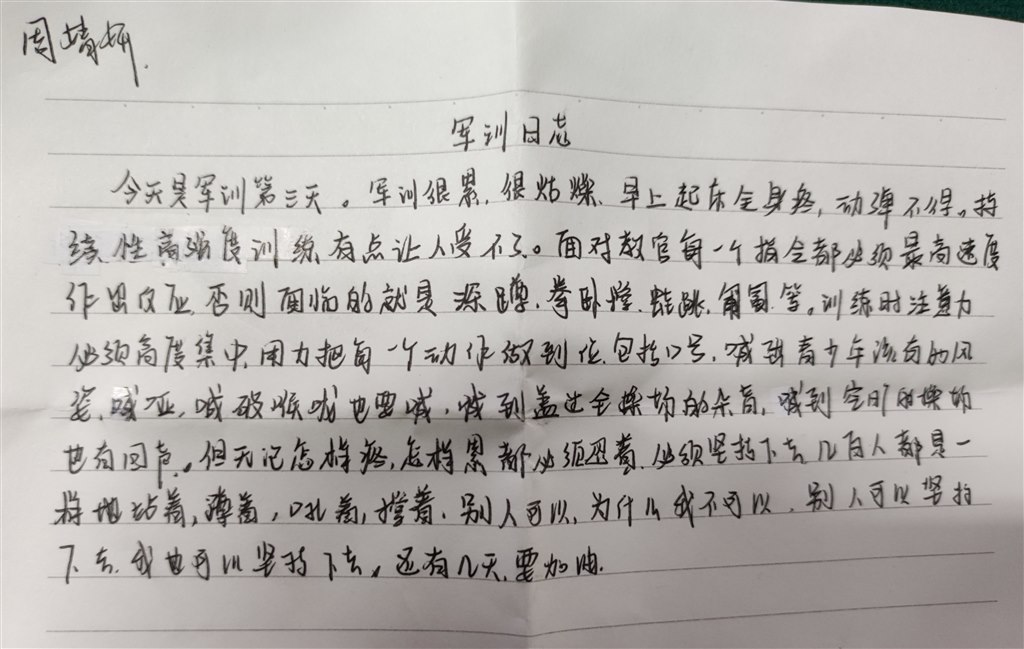 周婧妍.
军训日志
今天是军训第三天。军训很累,很枯燥,早上起床全身疼,动弹不得。持
续性高强度训练有点让人受不了。面对教官每一个指令都必须最高速度
作出反应,否则面临的就是深蹲.拳卧撑.蛙跳.匍匐.等。训练时注意力
必须高度集中,用力把每一个动作做到位.包括口号,喊到青少年该有的风
姿.喊哑,喊破喉咙也要喊,喊到盖过全操场的杂音,喊到空旷的操场
也有回声。但无论怎样疼,怎样累都必须忍着.必须坚持下去几百人都是一
样地站着,蹲着,趴着,撑着.别人可以,为什么我不可以.别人可以坚持
下去.我也可以坚持下去。还有几天,要加油.